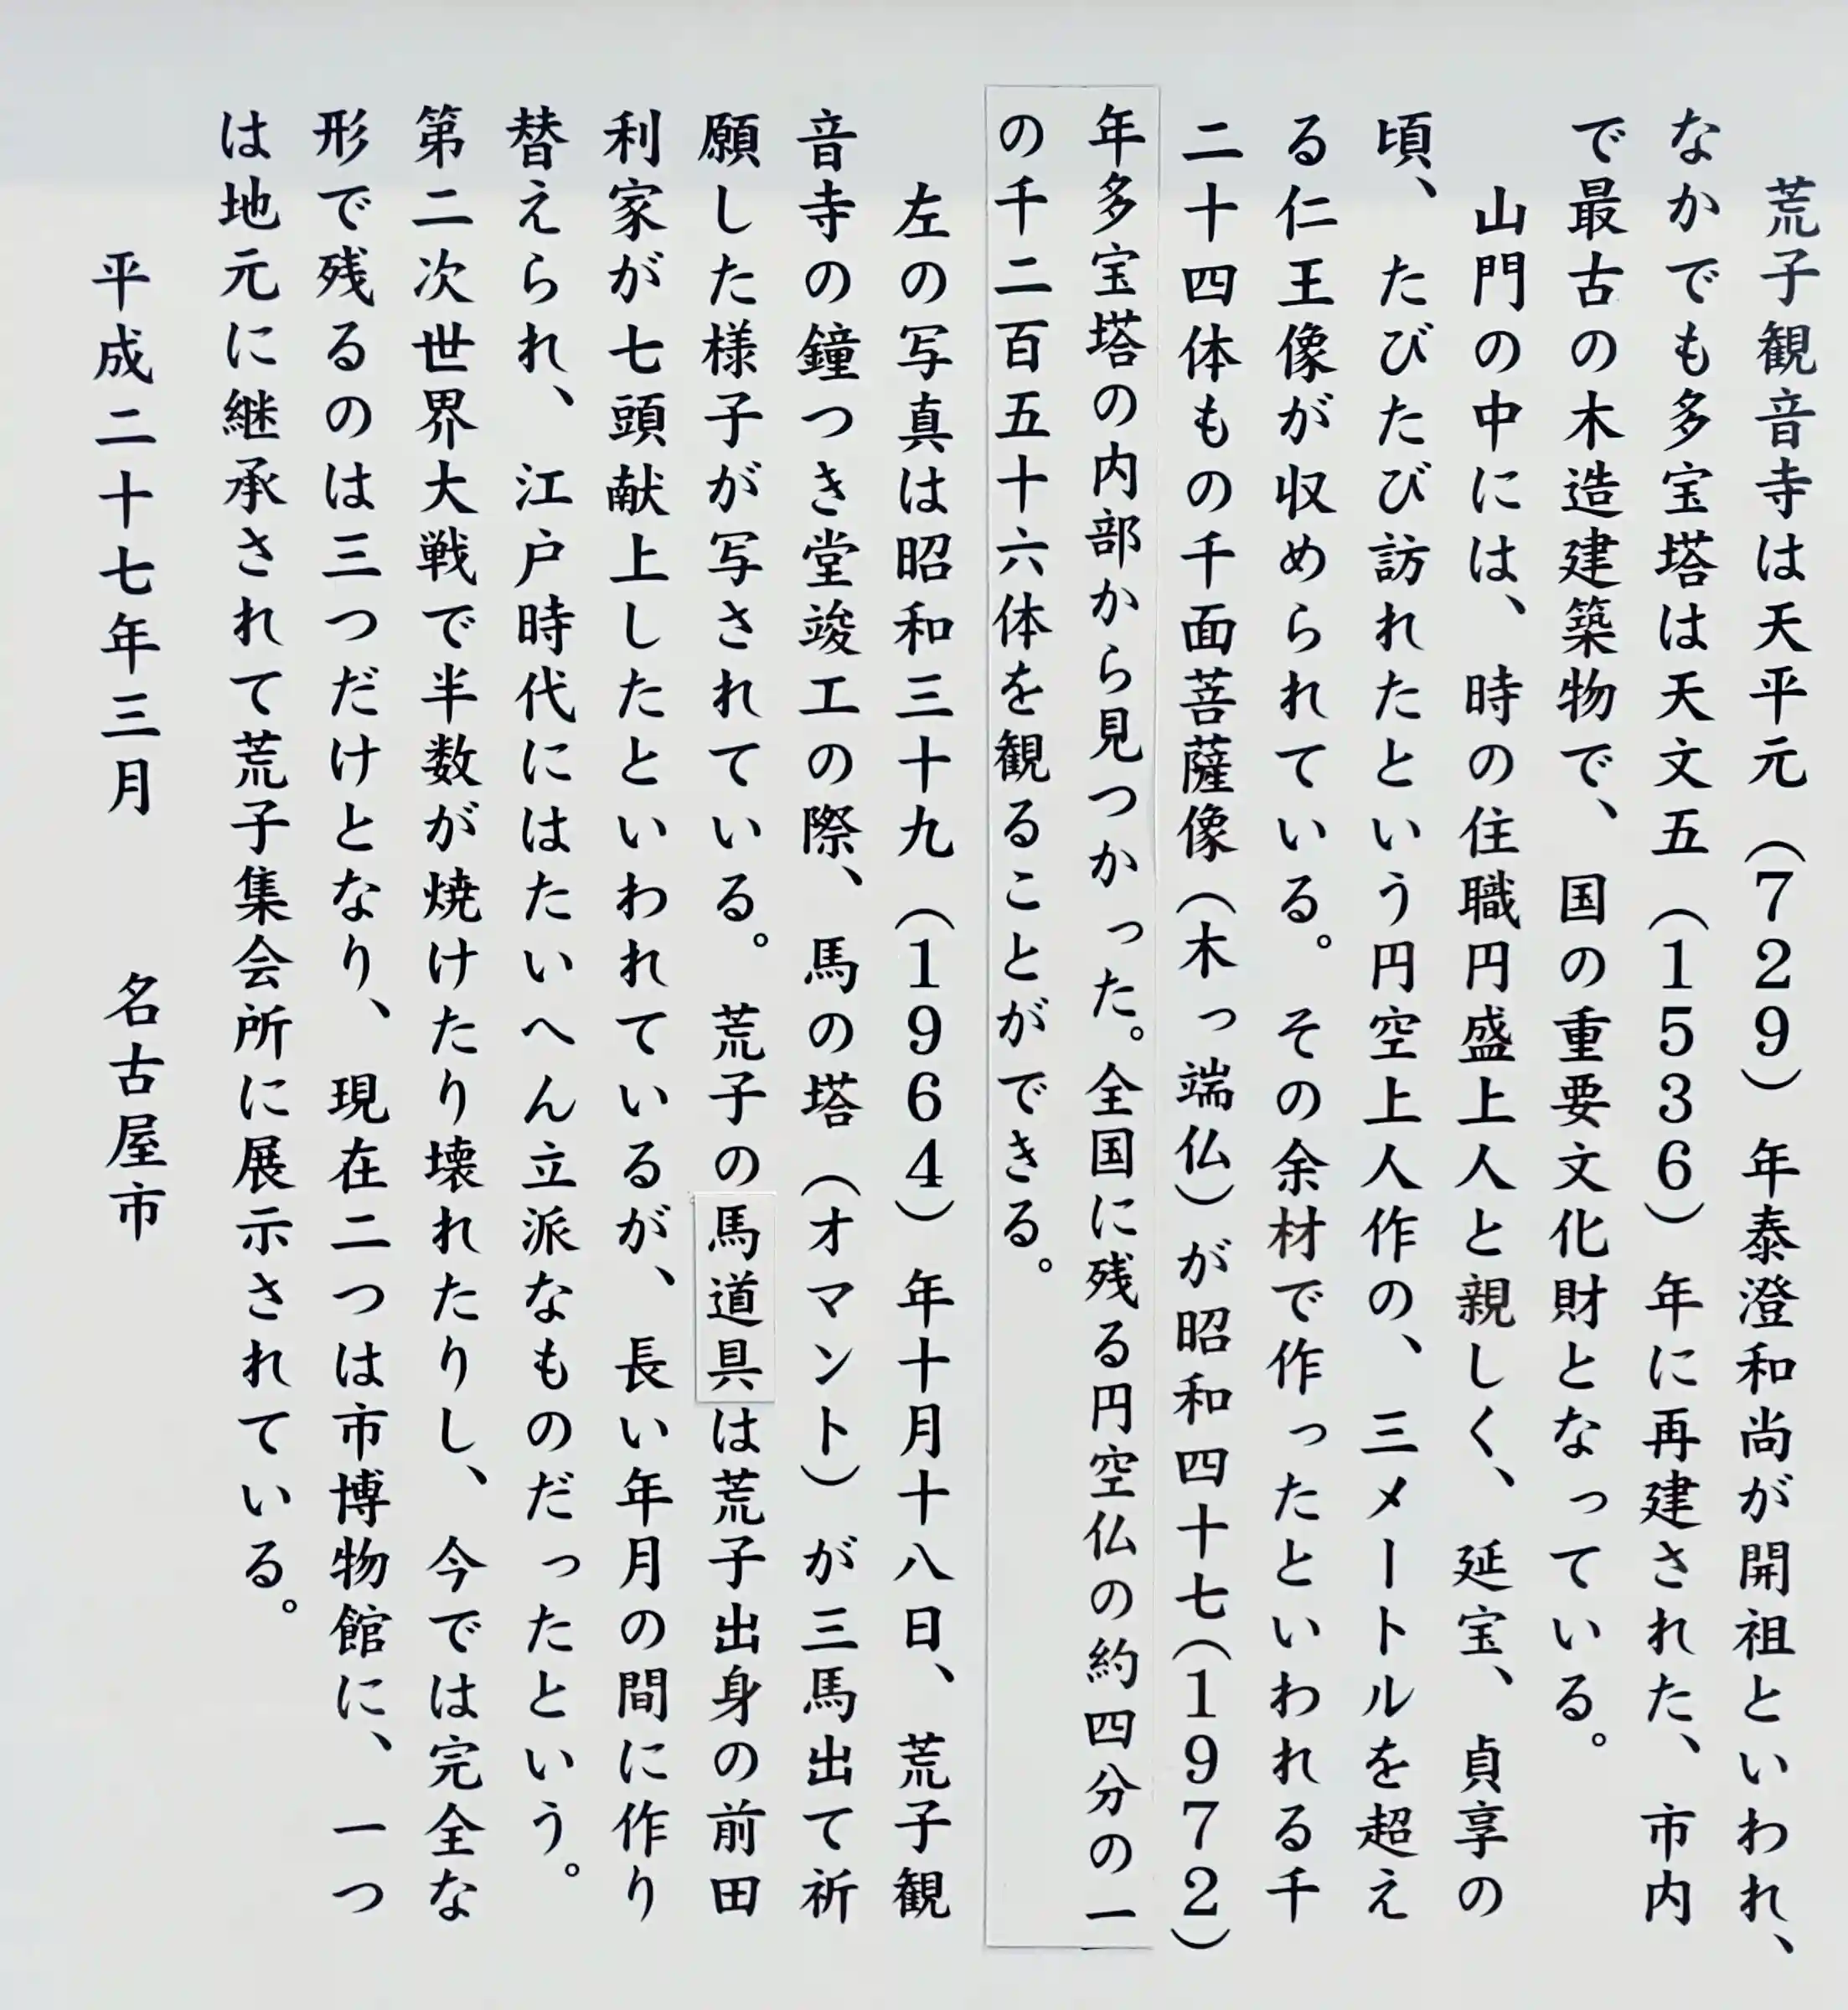 荒子観音寺は天平元(729)年泰澄和尚が開祖といわれ、
なかでも多宝塔は天文五(1536)年に再建された、市内
で最古の木造建築物で、国の重要文化財となっている。
山門の中には、時の住職円盛上人と親しく、延宝、貞享の
頃、たびたび訪れたという円空上人作の、三メートルを超え
る仁王像が収められている。その余材で作ったといわれる千
二十四体もの千面菩薩像(木っ端仏)が昭和四十七(1972)
年多宝塔の内部から見つかった。全国に残る円空仏の約四分の一
の千二百五十六体を観ることができる。
左の写真は昭和三十九(1964)年十月十八日、荒子観
音寺の鐘つき堂竣工の際、馬の塔(オマント)が三馬出て祈
願した様子が写されている。荒子の馬道具は荒子出身の前田
利家が七頭献上したといわれているが、長い年月の間に作り
替えられ、江戸時代にはたいへん立派なものだったという。
第二次世界大戦で半数が焼けたり壊れたりし、今では完全な
形で残るのは三つだけとなり、現在二つは市博物館に、一つ
は地元に継承されて荒子集会所に展示されている。
平成二十七年三月 名古屋市